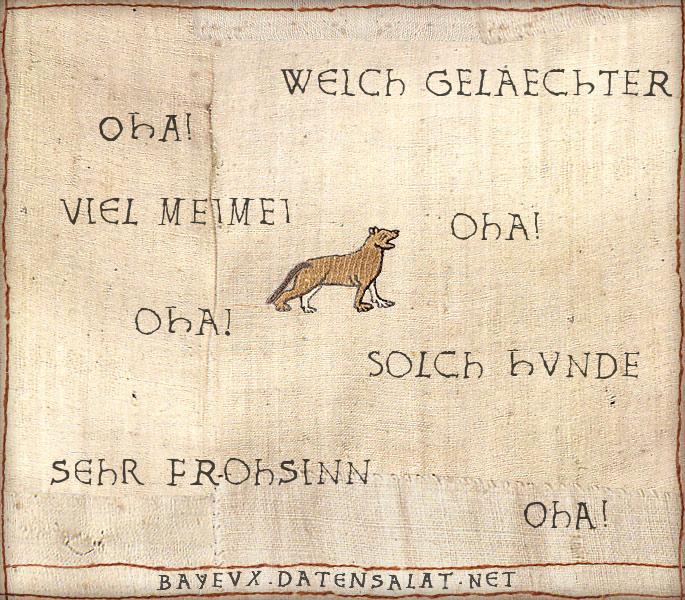 WELCH GELAECHTER
OHA!
VIEL MEIMEI
OHA!
OHA!
SOLCH HVNDE
SEHR FROHSINN
OHA!
BAYEVX.DATENSALAT.NET